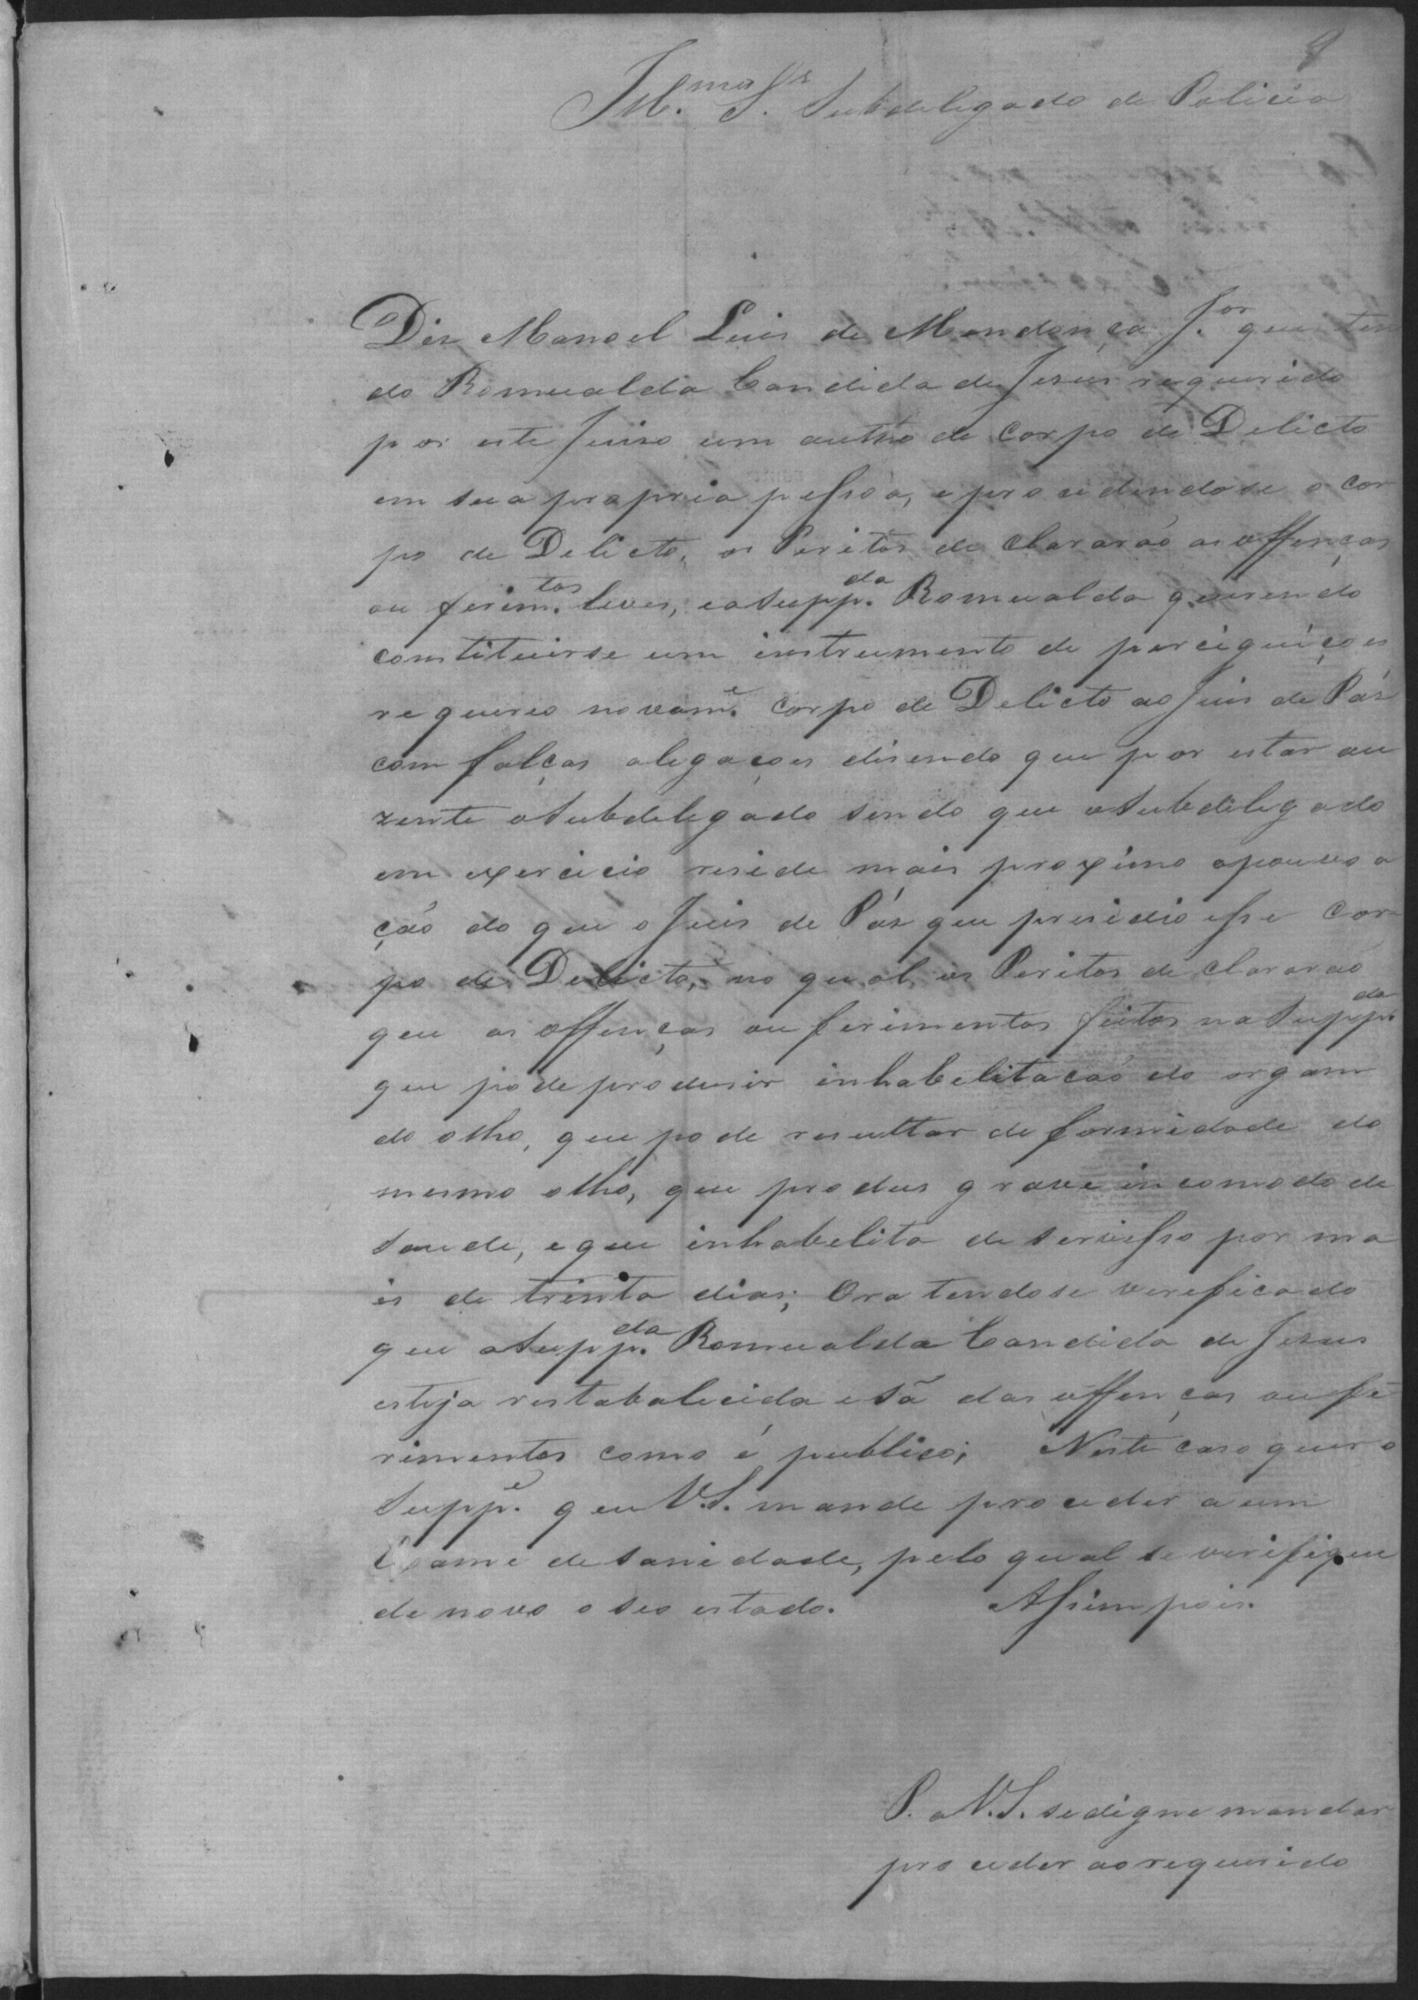 Ill.mo Sr. Subdelegado de Policia
Diz Manoel Luis de Mendonça J.or que ten
do Romualda Candida de Jesus requerido
por este Juiso um autho de corpo de Delicto
em sua propria pessoa, e procedendose o cor
po de Delicto, os Peritos declararão as offenças
ou ferim.tos leves, e a Supp.da Romualda querendo
constituirse um instrumento de perciguiçoes
requereo novam.e corpo de Delicto ao Juis de Páz
com falças alegaçoes disendo que por estar au
zente o Subdelegado sendo que o Subdelegado
em exercicio reside mais proximo a povoa
ção do que o Juis de Páz que presidio esse cor
po de Delicto, no qual os Peritos declararão
que as offenças ou ferimentos feitos na Supp.da
que pode produsir inhabelitação do orgam
do olho, que pode resultar deformidade do
mesmo olho, que produs grave incomodo de
saude, e que inhabelita de servisso por ma
is de trinta dias; Ora tendose verificado
que a Supp.da Romualda Candida de Jesus
esteja restabalecida e sã das offenças ou fe
rimentos como é publico; Neste caso quer o
Supp.e que V.S. mande proceder a um
Exame de sanidade, pelo qual se verifique
de novo o seo estado. Assim pois.
P. a V.S. se digne mandar
proceder ao requerido